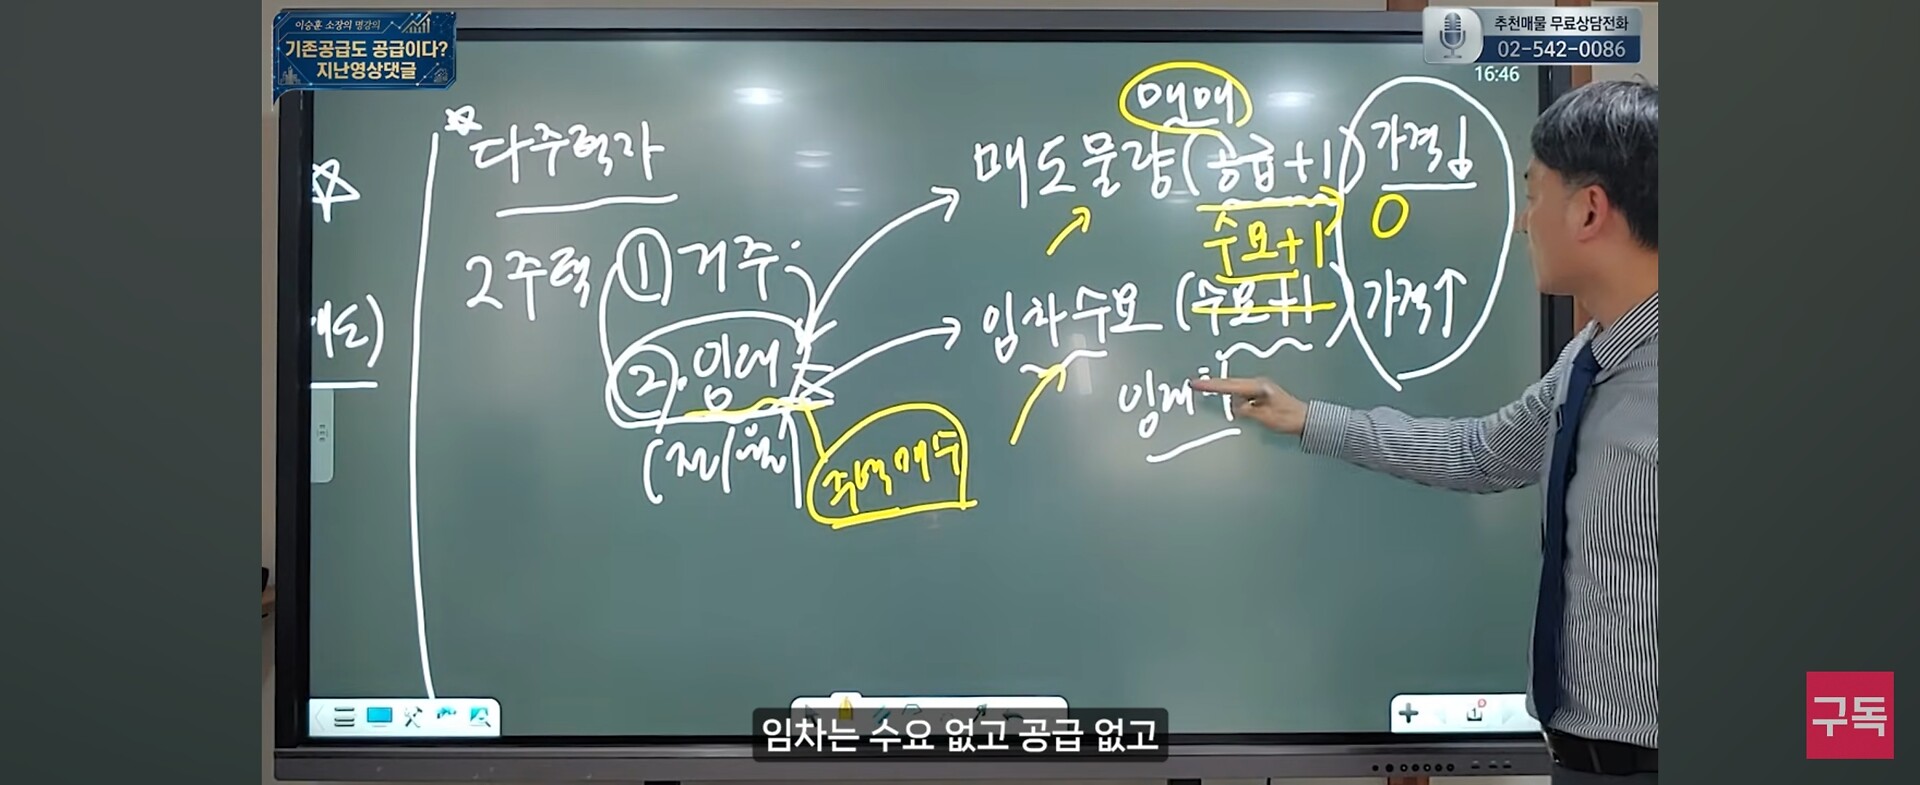 이승훈 소장의 명강의
기존공급도 공급이다?
지난영상댓글
추천매물 무료상담전화
02-542-0086
16:46
매매
☆ 다주택자
매도물량(공급+1) 가격↓
☆
수요+1 0
2주택 ① 거주
임차수요 (수요+1) 가격↑
매도)
②. 임대
임대차
(전/월)
주택매수
임차는 수요 없고 공급 없고
구독